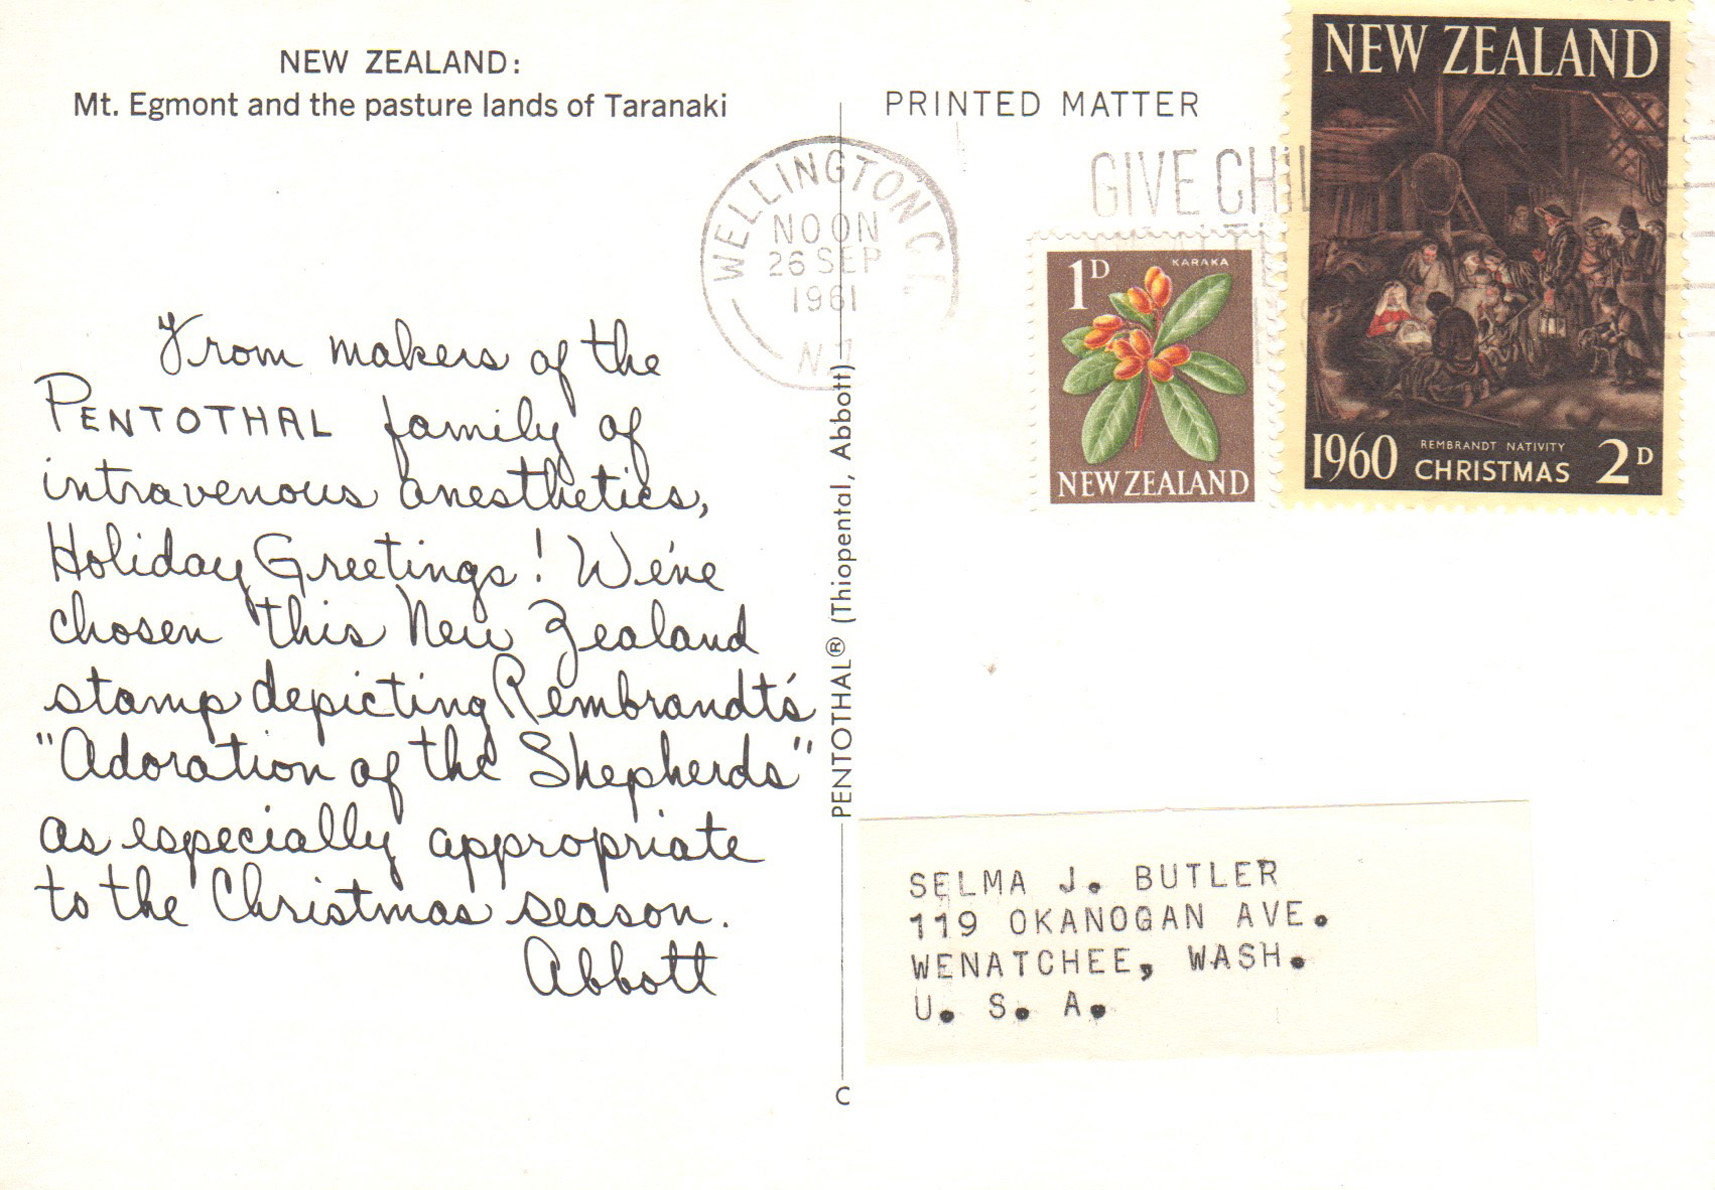 NEW ZEALAND:
Mt. Egmont and the pasture lands of Taranaki
From makers of the
PENTOTHAL family of
intravenous anesthetics,
Holiday Greetings! We've
chosen this New Zealand
stamp depicting Rembrandt's
"Adoration of the Shepherds"
as especially appropriate
to the Christmas season.
Abbott
PENTOTHAL® (Thiopental, Abbott)
C
PRINTED MATTER
WELLINGTON C.
NOON
26 SEP
1961
N.Z
GIVE CHIL
1D
KARAKA
NEW ZEALAND
NEW ZEALAND
1960
REMBRANDT NATIVITY
CHRISTMAS
2D
SELMA J. BUTLER
119 OKANOGAN AVE.
WENATCHEE, WASH.
U. S. A.